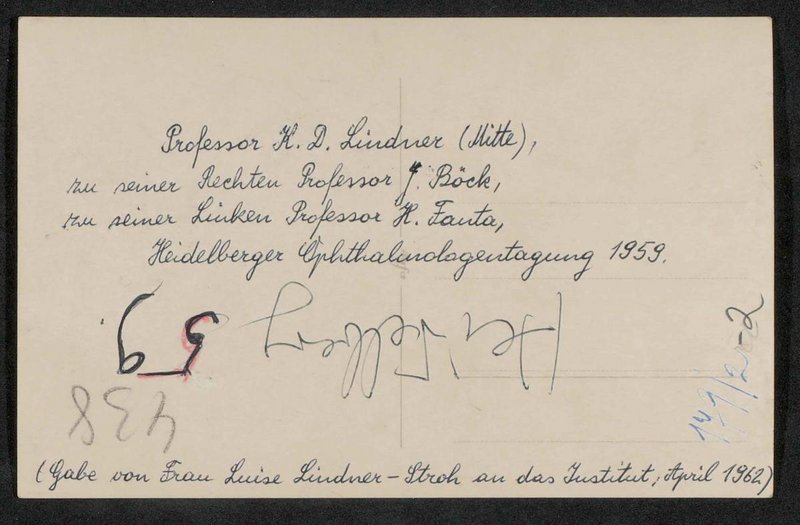 Professor K. D. Lindner (Mitte),
zu seiner Rechten Professor J. Böck,
zu seiner Linken Professor H. Fanta,
Heidelberger Ophthalmologentagung 1959.
59
438
149/2-2
(Gabe von Frau Luise Lindner-Stroh an das Institut, April 1962)